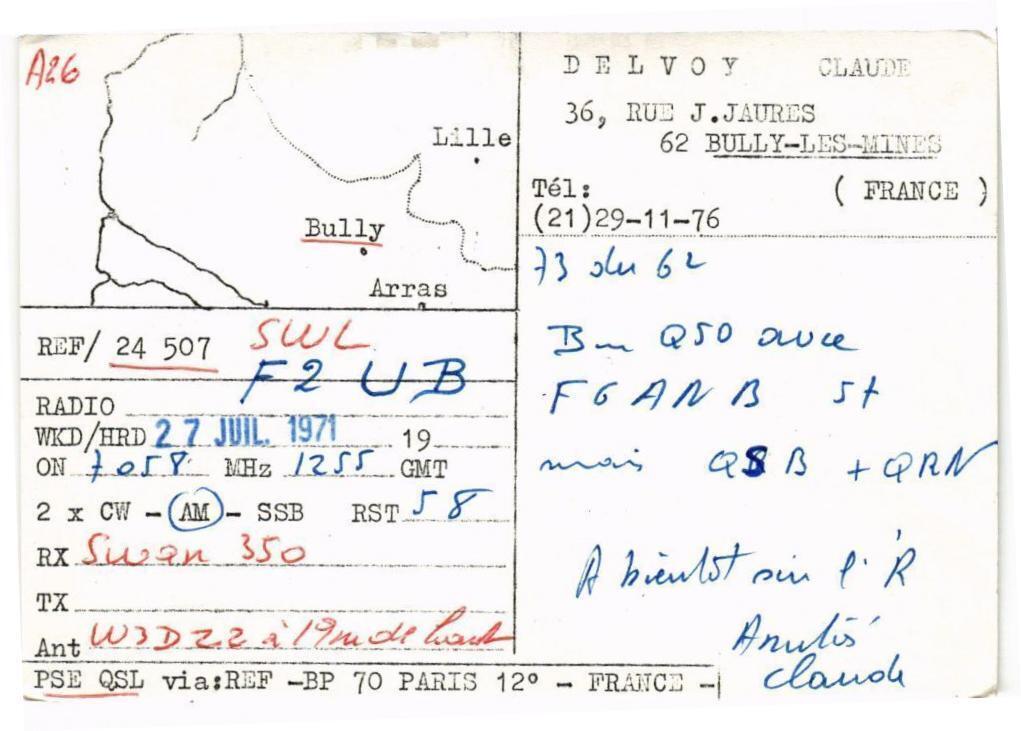 A26
Lille
Bully
Arras
DELVOY CLAUDE
36, RUE J.JAURES
62 BULLY-LES-MINES
Tél: ( FRANCE )
(21)29-11-76
REF/ 24 507 SWL
F2UB
RADIO
WKD/HRD 27 JUIL. 1971 19
ON 7058 MHz 1255 GMT
2 x CW - AM - SSB RST 58
RX Swan 350
TX
Ant W3DZZ à 19m de haut
PSE QSL via:REF -BP 70 PARIS 12° - FRANCE -
73 du 62
Bon QSO avec
F6ANB
mais QSB + QRN
A bientôt sur l'R
Amitiés
Claude